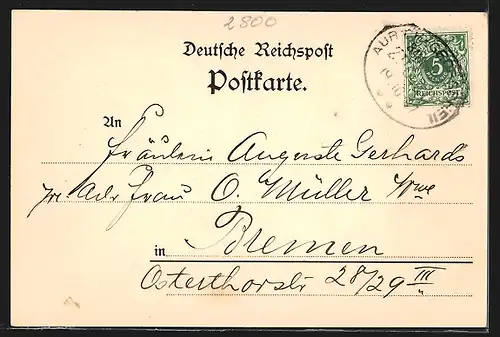 2800
Deutsche Reichspost
Postkarte.
5
REICHSPOST
An
Fräulein Auguste Gerhards
pr Adr Frau O. Müller Wwe
in Bremen
Osterthorstr 28/29 III